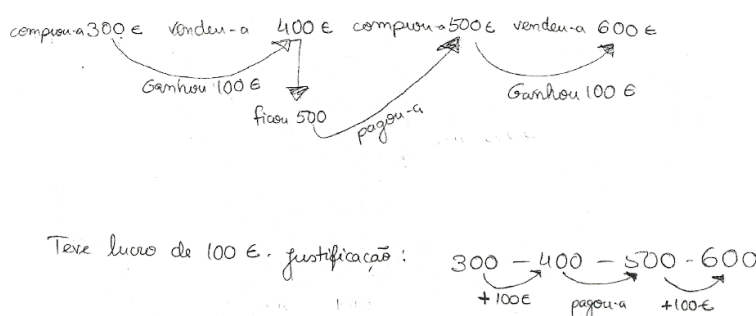 comprou-a 300 € vendeu-a 400 € comprou-a 500 € vendeu-a 600 €
Ganhou 100 € Ganhou 100 €
ficou 500 pagou-a
Teve lucro de 100 €. Justificação: 300 - 400 - 500 - 600
+100€ pagou-a +100€